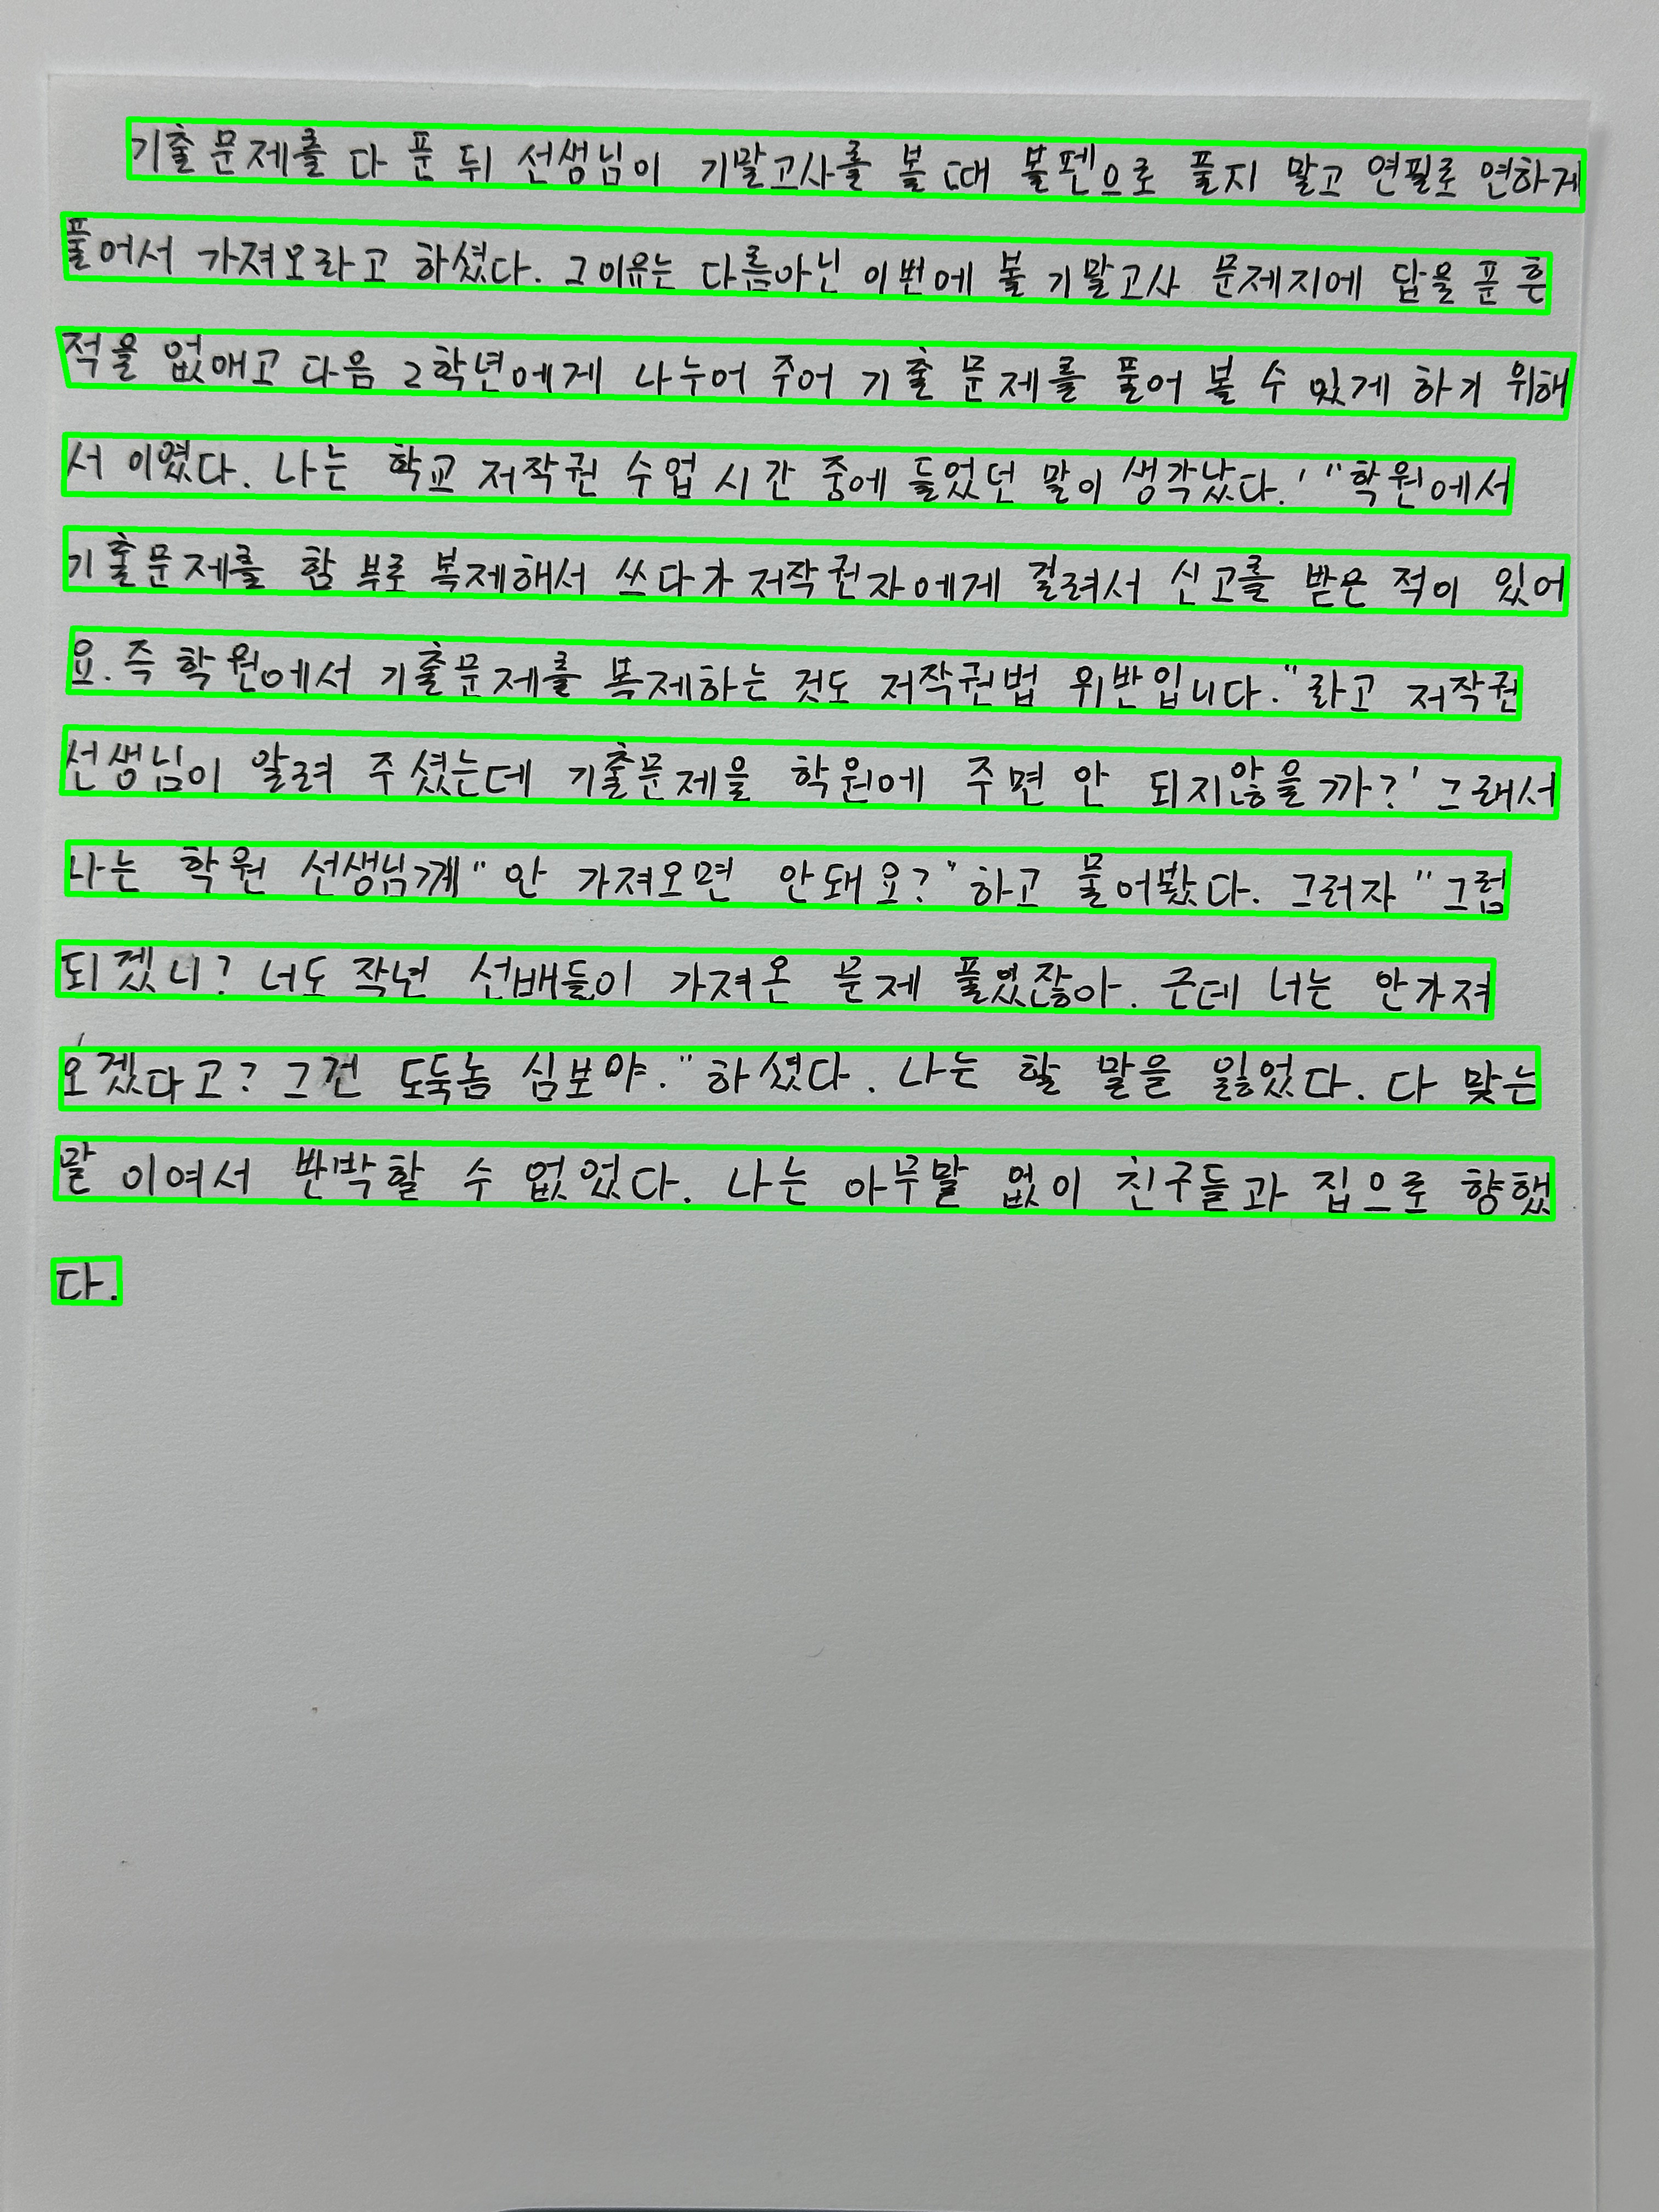 기출문제를 다 푼 뒤 선생님이 기말고사를 볼 때 볼펜으로 풀지 말고 연필로 연하게
풀어서 가져오라고 하셨다. 그 이유는 다름아닌 이번에 볼 기말고사 문제지에 답을 푼 흔
적을 없애고 다음 2학년에게 나누어 주어 기출 문제를 풀어 볼 수 있게 하기 위해
서 이였다. 나는 학교 저작권 수업 시간 중에 들었던 말이 생각났다. ' "학원에서
기출문제를 함부로 복제해서 쓰다가 저작권자에게 걸려서 신고를 받은 적이 있어
요. 즉 학원에서 기출문제를 복제하는 것도 저작권법 위반입니다." 라고 저작권
선생님이 알려 주셨는데 기출문제을 학원에 주면 안 되지않을까?' 그래서
나는 학원 선생님께 "안 가져오면 안돼요?" 하고 물어봤다. 그러자 "그럼
되겠니? 너도 작년 선배들이 가져온 문제 풀었잖아. 근데 너는 안가져
오겠다고? 그건 도둑놈 심보야." 하셨다. 나는 할 말을 잃었다. 다 맞는
말 이여서 반박할 수 없었다. 나는 아무말 없이 친구들과 집으로 향했
다.